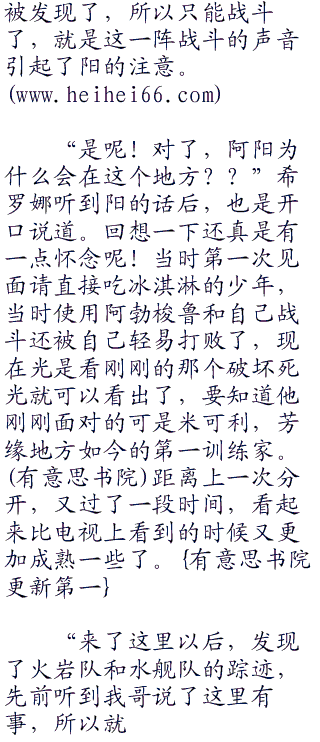 被发现了，所以只能战斗
了，就是这一阵战斗的声音
引起了阳的注意。
(www.heihei66.com)
“是呢！对了，阿阳为
什么会在这个地方？？”希
罗娜听到阳的话后，也是开
口说道。回想一下还真是有
一点怀念呢！当时第一次见
面请直接吃冰淇淋的少年，
当时使用阿勃梭鲁和自己战
斗还被自己轻易打败了，现
在光是看刚刚的那个破坏死
光就可以看出了，要知道他
刚刚面对的可是米可利，芳
缘地方如今的第一训练家。
(有意思书院)距离上一次分
开，又过了一段时间，看起
来比电视上看到的时候又更
加成熟一些了。{有意思书院
更新第一}
“来了这里以后，发现
了火岩队和水舰队的踪迹，
先前听到我哥说了这里有
事，所以就